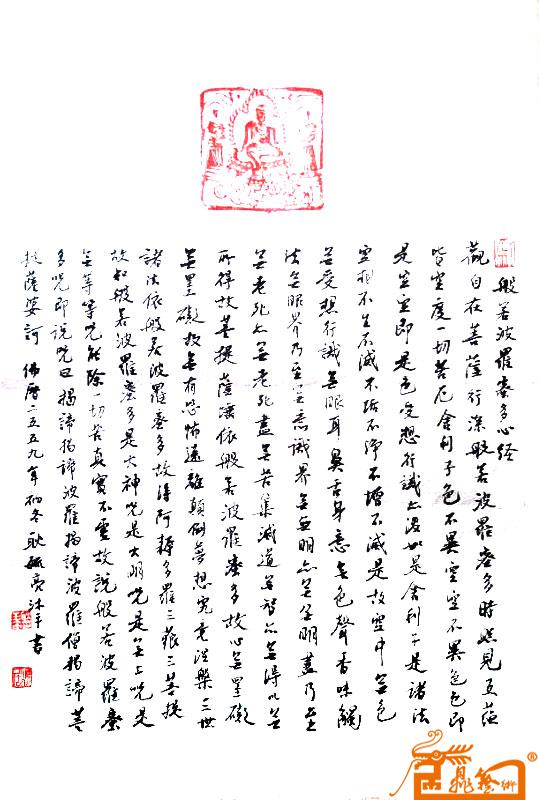 般若波羅蜜多心经
觀自在菩薩行深般若波羅蜜多時照見五蘊
皆空度一切苦厄舍利子色不異空空不異色色即
是空空即是色受想行識亦復如是舍利子是諸法
空相不生不滅不垢不淨不增不減是故空中無色
無受想行識無眼耳鼻舌身意無色聲香味觸
法無眼界乃至無意識界無無明亦無無明盡乃至
無老死亦無老死盡無苦集滅道無智亦無得以無
所得故菩提薩埵依般若波羅蜜多故心無罣礙
無罣礙故無有恐怖遠離顛倒夢想究竟涅槃三世
諸佛依般若波羅蜜多故得阿耨多羅三藐三菩提
故知般若波羅蜜多是大神咒是大明咒是無上咒是
無等等咒能除一切苦真實不虛故說般若波羅蜜
多咒即說咒曰揭諦揭諦波羅揭諦波羅僧揭諦菩
提薩婆訶 佛曆二五五九年初冬耿毓亮沐手書